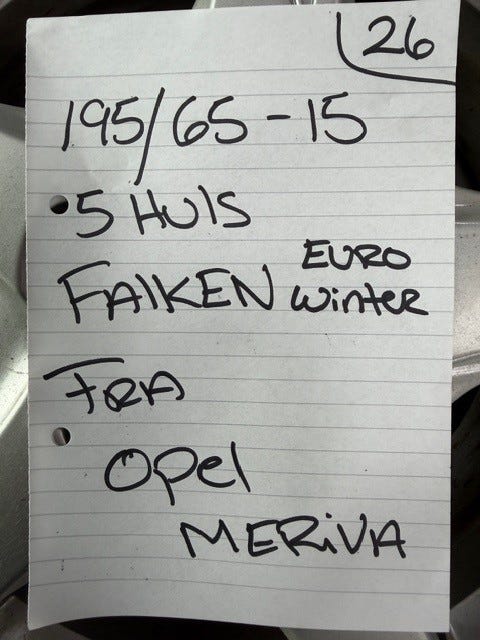 26
195/65-15
5 HULS
FALKEN EURO
Winter
FRA
Opel
MERiVA